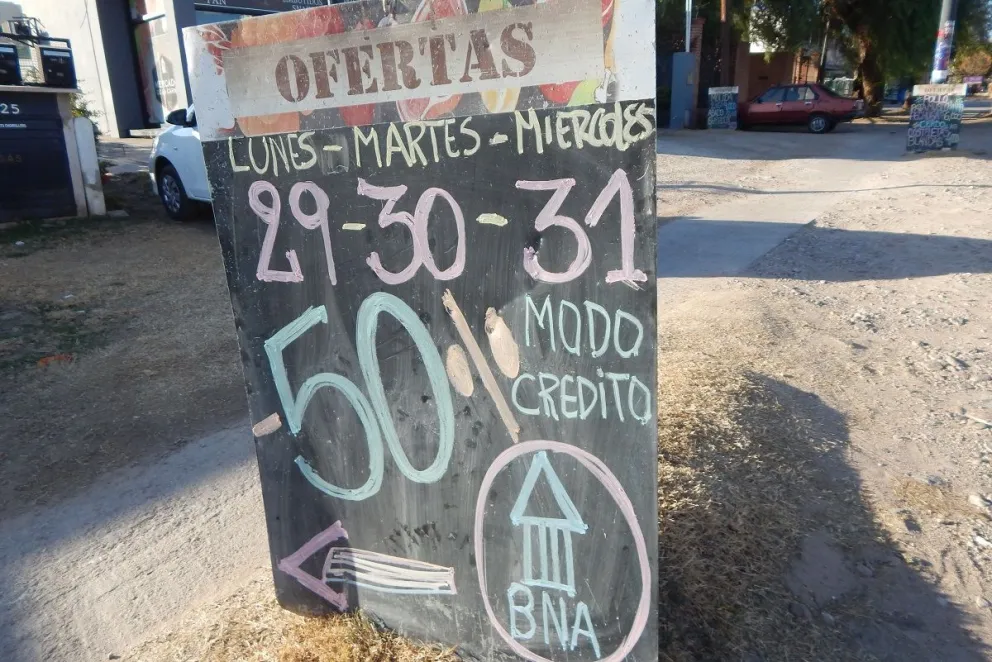 OFERTAS
LUNES - MARTES - MIERCOLES
29 - 30 - 31
50%
MODO
CREDITO
BNA
25